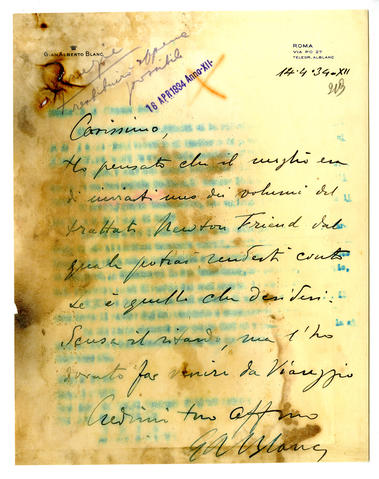 GIANALBERTO BLANC
ROMA
VIA PO 27
TELEGR. ALBLANC
14.4.34-XII
restituirò appena
possibile
16 APR 1934 Anno XII.
Carissimo,
Ho pensato che il meglio era
di inviarti uno dei volumi del
trattato Newton Friend dal
quale potrai renderti conto
se è quello che desideri.
Scusa il ritardo, ma l'ho
dovuto far venire da Viareggio
Credimi tuo affmo
GABlanc